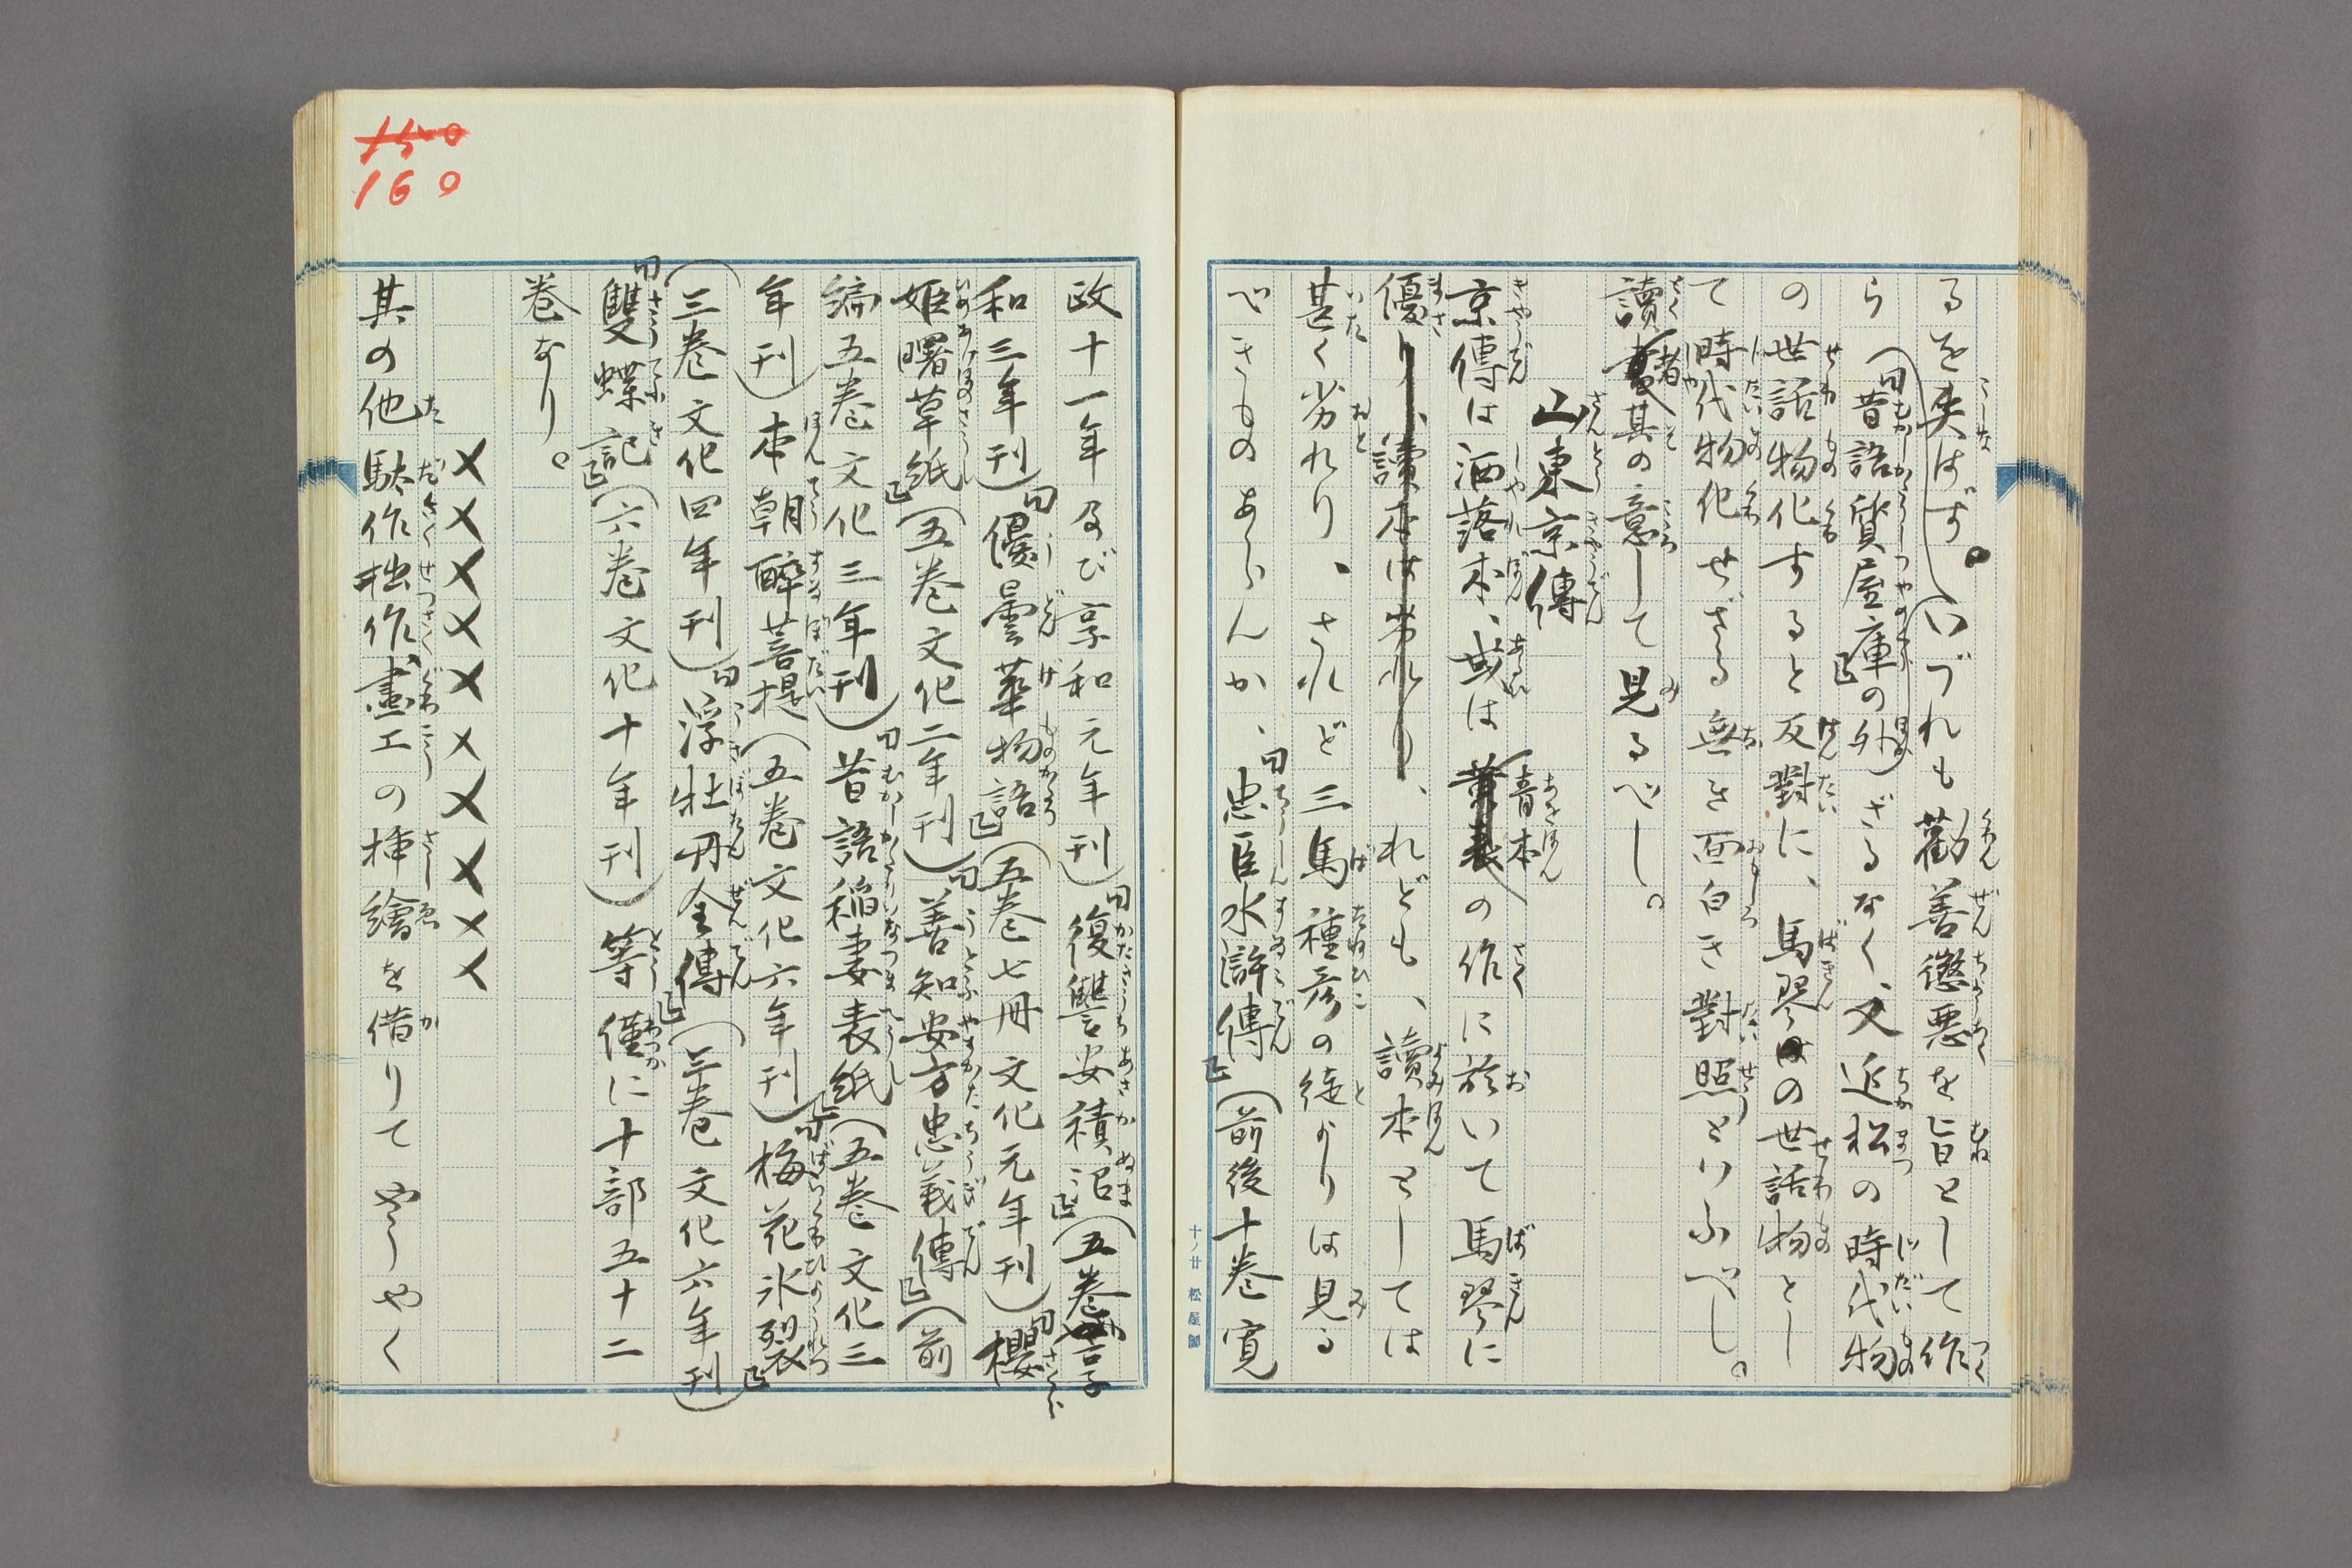 るを失はず。いづれも勸善懲惡を旨として作
ら(「昔語質屋庫」の外)ざるなく、又近松の時代物
の世話物化すると反對に、馬琴の世話物とし
て時代物化せざる無き面白き對照といふべし。
讀者其の意して見るべし。
山東京傳
京傳は洒落本、或は(青本)の作に於いて馬琴に
優り、讀本は劣れり、れども、讀本としては
甚く劣れり、されど三馬種彦の徒よりは見る
べきものあらんか、「忠臣水滸傳」(前後十巻寛
政十一年及び享和元年刊)「復讐安積沼」(五巻享
和三年刊)「優曇華物語」(五巻七冊文化元年刊)「櫻
姫曙草紙」(五巻文化二年刊)「善知安方忠義傳」(前
編五巻文化三年刊)「昔語稲妻表紙」(五巻文化三
年刊)本朝醉菩提(五巻文化六年刊)「梅花氷裂」
(三巻文化四年刊)「浮牡丹全傳」(三巻文化六年刊)
「雙蝶記」(六巻文化十年刊)等僅に十部五十二
巻なり。
××××××××××
其の他駄作拙作、畫工の挿繪を借りてやうやく
150
160
十ノ廿 松屋製